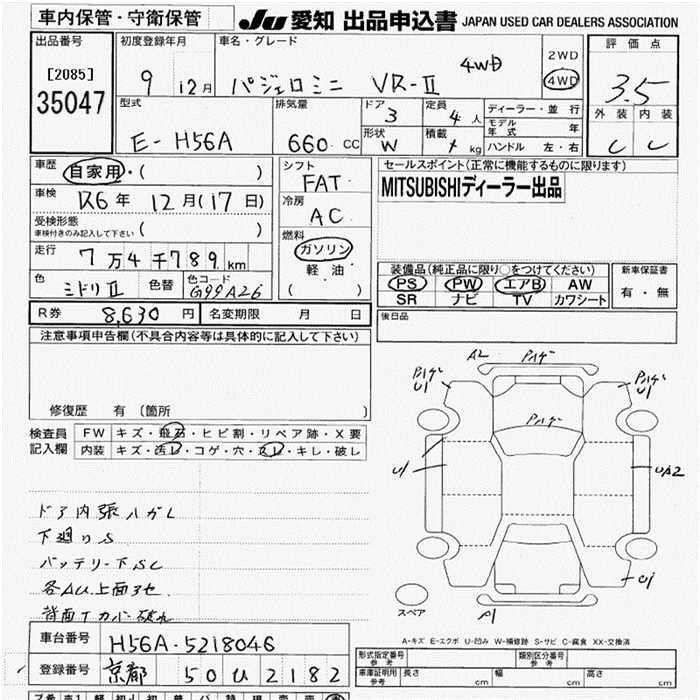 車内保管・守衛保管
JU 愛知 出品申込書 JAPAN USED CAR DEALERS ASSOCIATION
出品番号 初度登録年月 車名・グレード 評価点
[2085] 9 12月 パジェロミニ VR-Ⅱ 4WD 2WD 4WD 3.5
35047
型式 排気量 ドア 3 定員 4人 ディーラー・並行 外装 内装
E-H56A 660 CC 形状 W 積載 kg モデル年式 年 C C
ハンドル 左・右
車歴 自家用・( ) シフト セールスポイント(正常に機能するものに限ります)
FAT
車検 R6年 12月(17日) 冷房 MITSUBISHIディーラー出品
受検形態 AC
車検付きのみ記入して下さい ( ) 燃料
走行 7万4千789km ガソリン 装備品(純正品に限り○をつけてください) 新車保証書
色 ミドリⅡ 色替 色コード G99A26 軽油・ PS PW エアB AW 有・無
( ) SR ナビ TV カワシート
R券 8,630円 名変期限 月 日 後日品
注意事項申告欄(不具合内容等は具体的に記入して下さい)
修復歴 有(箇所 )
検査員 FW キズ・飛石・ヒビ割・リペア跡・X要
記入欄 内装 キズ・汚レ・コゲ・穴・スレ・キレ・破レ
A2 Pハゲ
PハゲU1 PハゲU1
Pハゲ
U1 UA2
U1
P1
スペア
ドア内張ハガレ
下廻りS
バッテリー下SC
各AU上面3セ
背面Tカバー破れ
A-キズ E-エクボ U-凹み W-補修跡 S-サビ C-腐食 XX-交換済
車台番号 H56A-5218046 形式指定番号 参考 類別区分番号 参考
登録番号 京都 50 ひ 2182 車庫証明用 参考 長さ cm 幅 cm 高さ cm